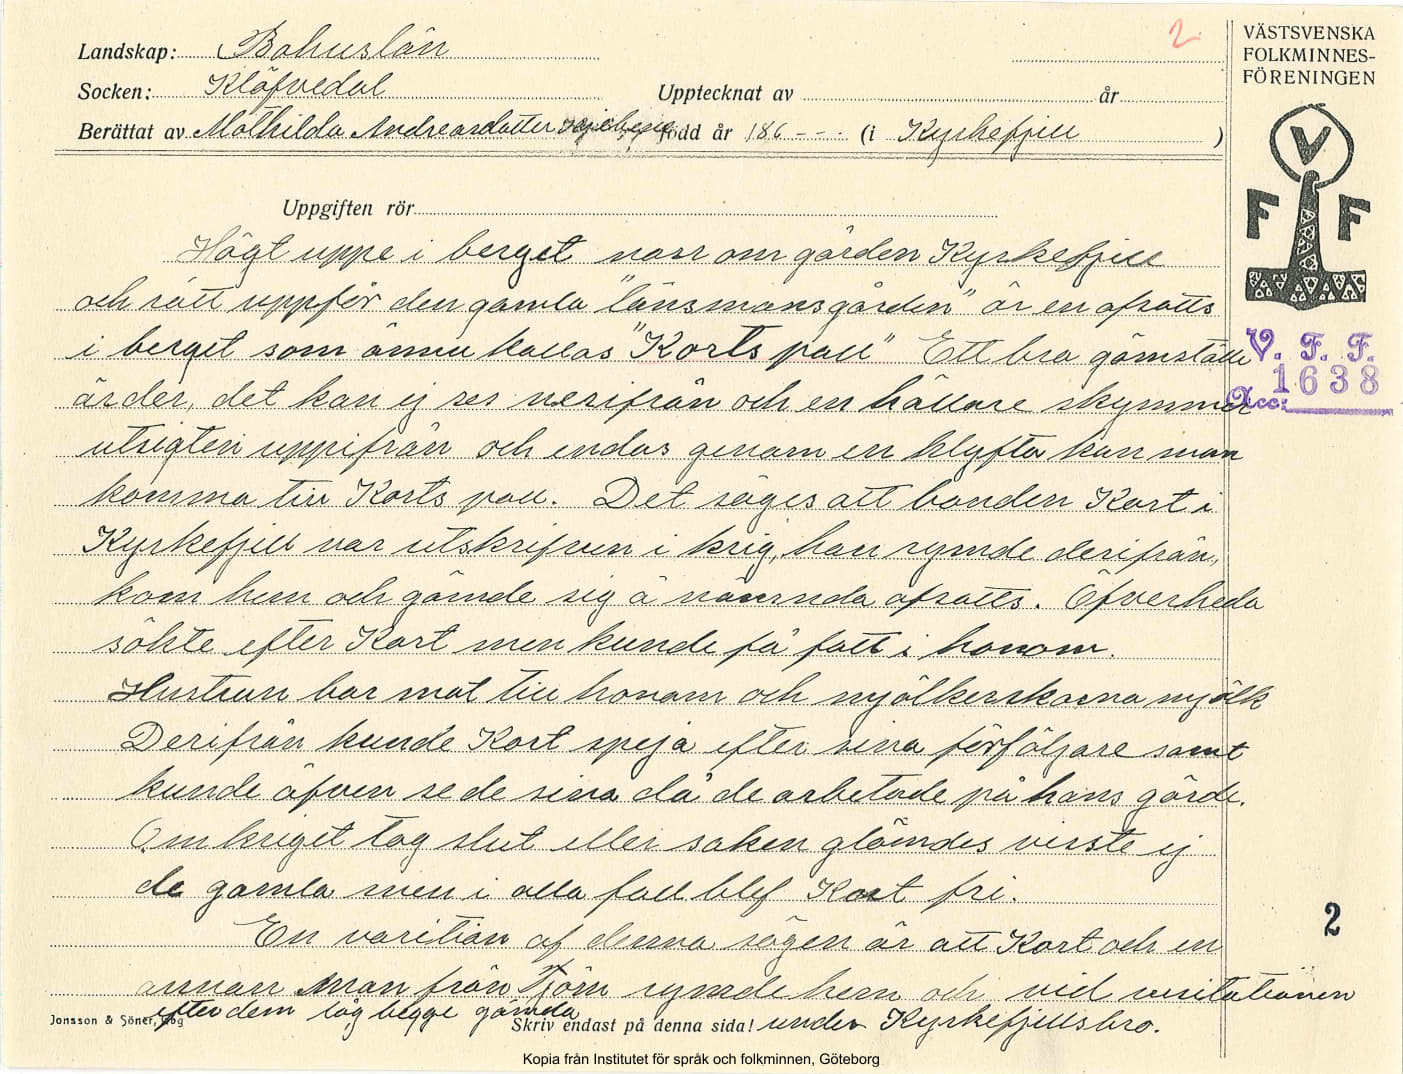 2.
VÄSTSVENSKA
FOLKMINNES-
FÖRENINGEN
V
F F
V. F. F.
Acc: 1638
Landskap: Bohuslän
Socken: Klöfvedal
Upptecknat av år
Berättat av Mathilda Andreasdotter född år 186 - - . (i Kyrkefjell )
Uppgiften rör
Högt uppe i berget norr om gården Kyrkefjell
och rätt uppför den gamla "länsmansgården" är en afsatts
i berget som ännu kallas "Korts pall" Ett bra gömställe
är der, det kan ej ses nerifrån och en hällare skymmer
utsigten uppifrån och endas genom en klyfta kan man
komma till Korts pall. Det säges att bonden Kort i
Kyrkefjell var utskrifven i krig, han rymde derifrån,
kom hem och gömde sig å nämnda afsatts. Öfverheda
sökte efter Kort men kunde få fatt i honom.
Hustrun bar mat till honom och mjölkerskorna mjölk
Derifrån kunde Kort speja efter sina förföljare samt
kunde äfven se de sina då de arbetade på hans gärde.
Om kriget tog slut eller saken glömdes visste ej
de gamla men i alla fall blef Kort fri.
En varition af denna sägen är att Kort och en
annan man från Tjörn rymde hem och vid visitationen
efter dem låg begge gömda under Kyrkefjellsbro.
Jonsson & Söner, Gbg
Skriv endast på denna sida!
2
Kopia från Institutet för språk och folkminnen, Göteborg